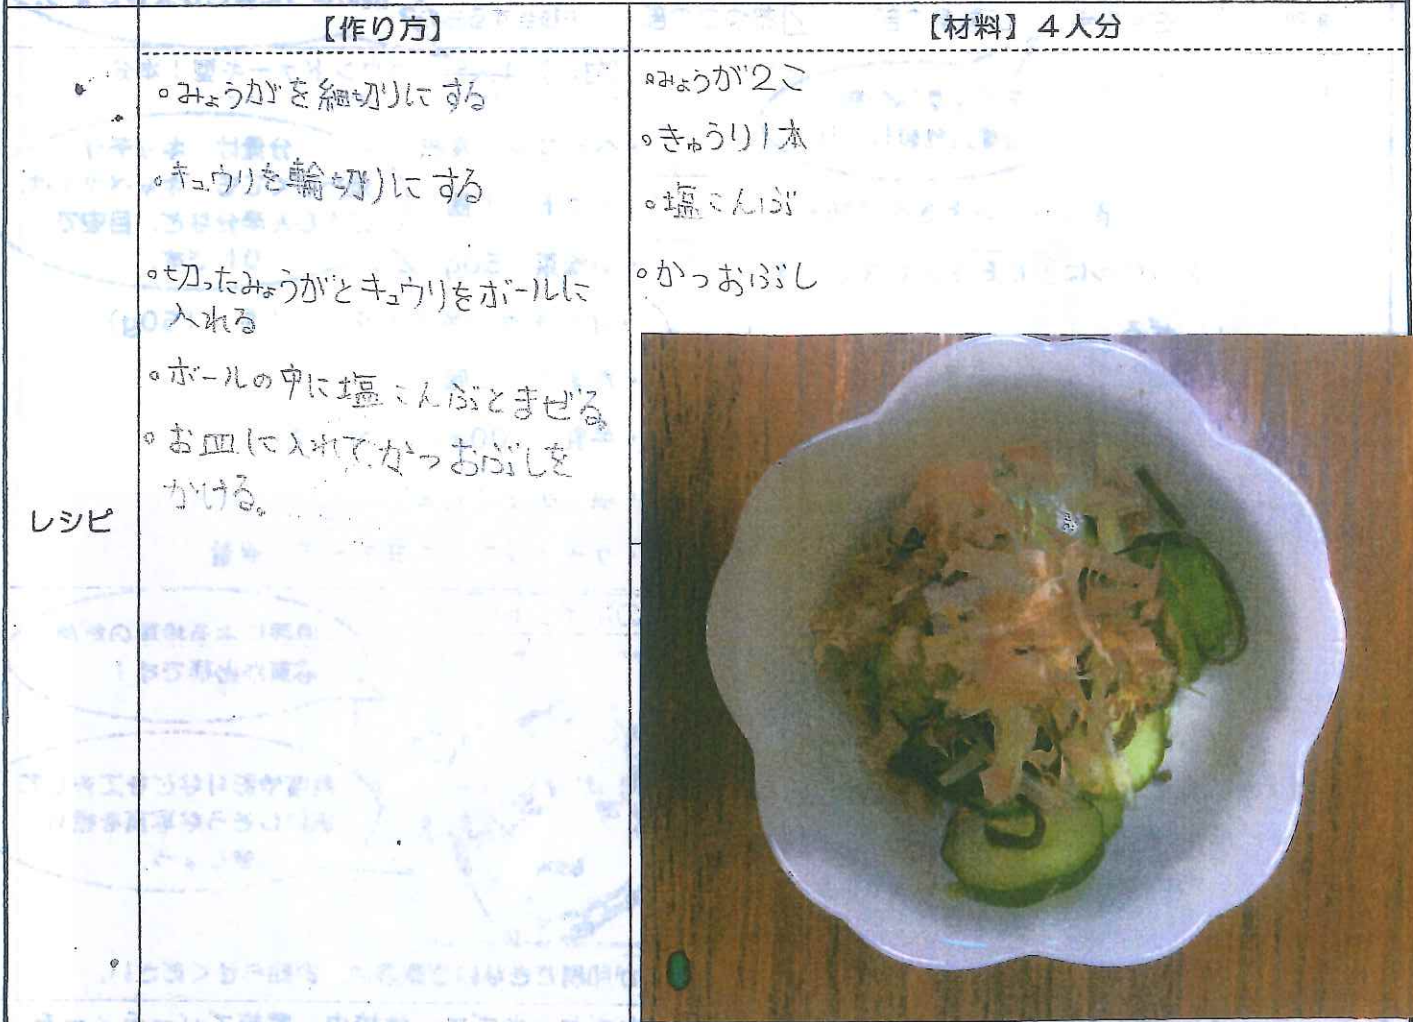 【作り方】
。みょうがを細切りにする
。キュウリを輪切りにする
。切ったみょうがとキュウリをボールに
入れる
。ボールの中に塩こんぶとまぜる。
。お皿に入れてかつおぶしを
かける。
【材料】4人分
。みょうが2こ
。きゅうり1本
。塩こんぶ
。かつおぶし
レシピ